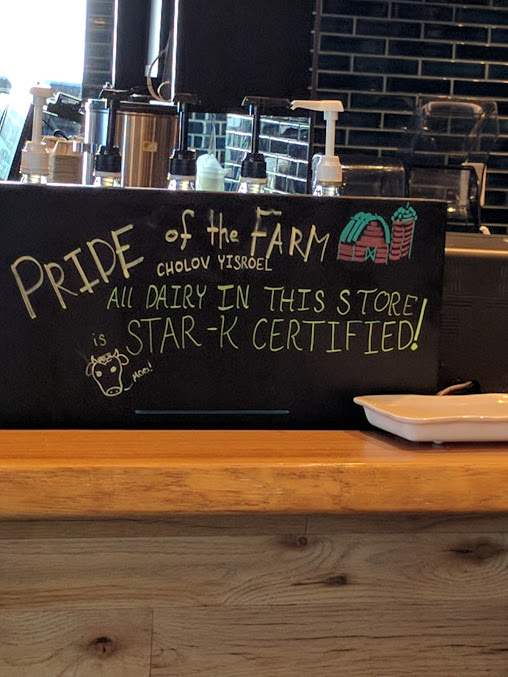 PRIDE of the FARM
CHOLOV YISROEL
All DAIRY IN THIS STORE
is STAR-K CERTIFIED!
MOO!